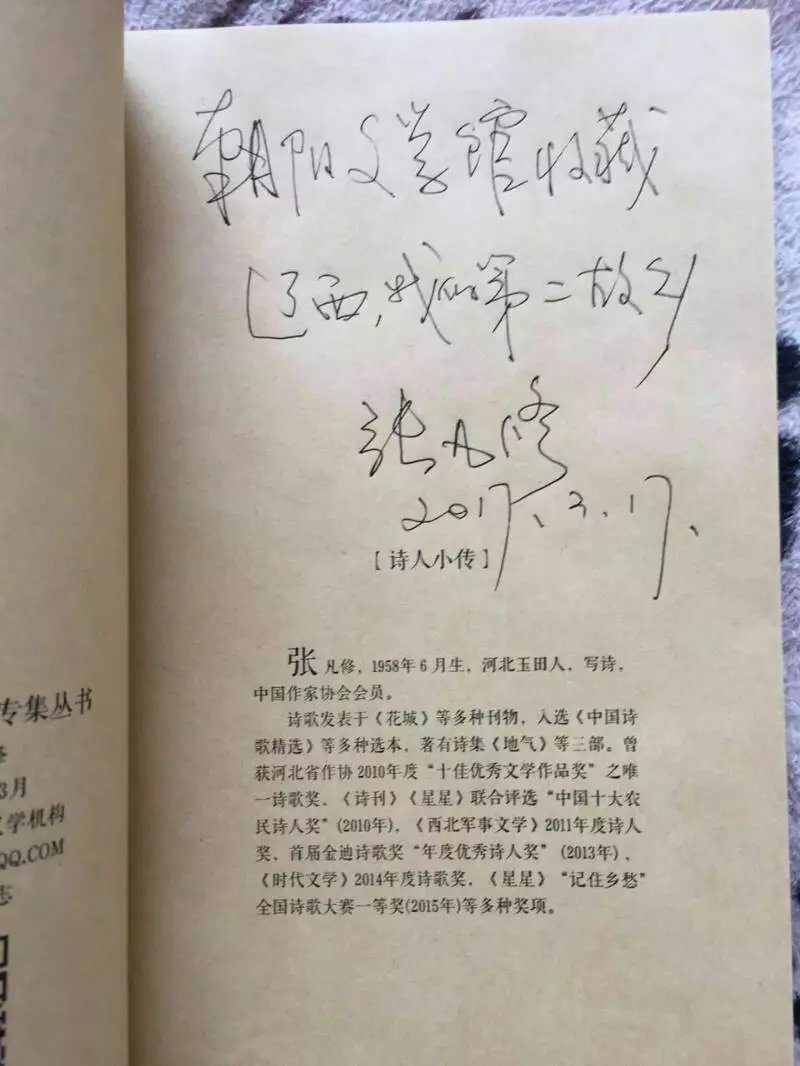 专集丛书
3月
文学机构
QQ.COM
志
朝阳文学馆收藏
辽西,我的第二故乡
张凡修
2017.3.17.
[诗人小传]
张凡修，1958年6月生，河北玉田人，写诗，
中国作家协会会员。
诗歌发表于《花城》等多种刊物，入选《中国诗
歌精选》等多种选本，著有诗集《地气》等三部。曾
获河北省作协2010年度“十佳优秀文学作品奖”之唯
一诗歌奖，《诗刊》《星星》联合评选“中国十大农
民诗人奖”(2010年)，《西北军事文学》2011年度诗人
奖，首届金迪诗歌奖“年度优秀诗人奖”(2013年)，
《时代文学》2014年度诗歌奖，《星星》“记住乡愁”
全国诗歌大赛一等奖(2015年)等多种奖项。